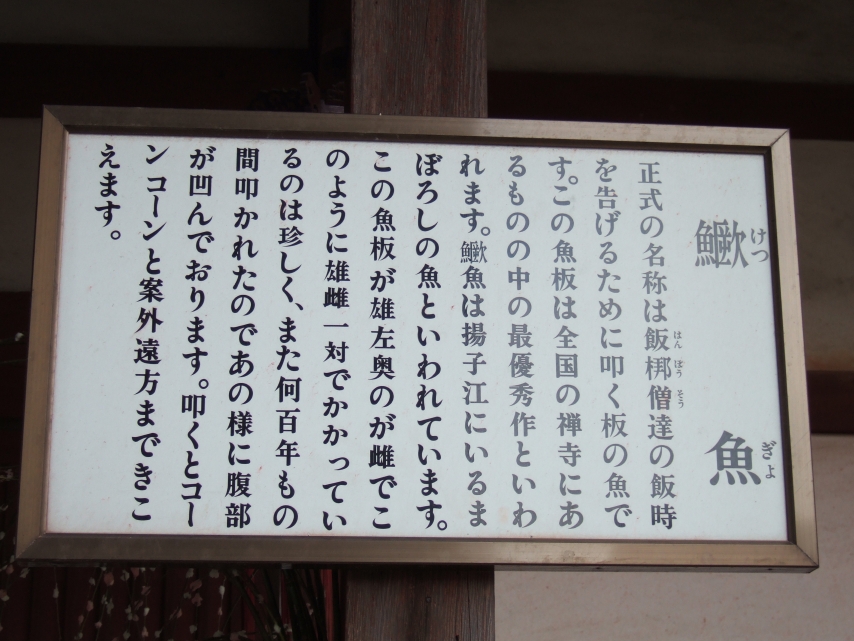 鱖魚
けつ ぎょ
正式の名称は飯梆僧達の飯時
はん ぽう そう
を告げるために叩く板の魚で
す。この魚板は全国の禅寺にあ
るものの中の最優秀作といわ
れます。鱖魚は揚子江にいるま
ぼろしの魚といわれています。
この魚板が雄左奥のが雌でこ
のように雄雌一対でかかってい
るのは珍しく、また何百年もの
間叩かれたのであの様に腹部
が凹んでおります。叩くとコー
ンコーンと案外遠方まできこ
えます。